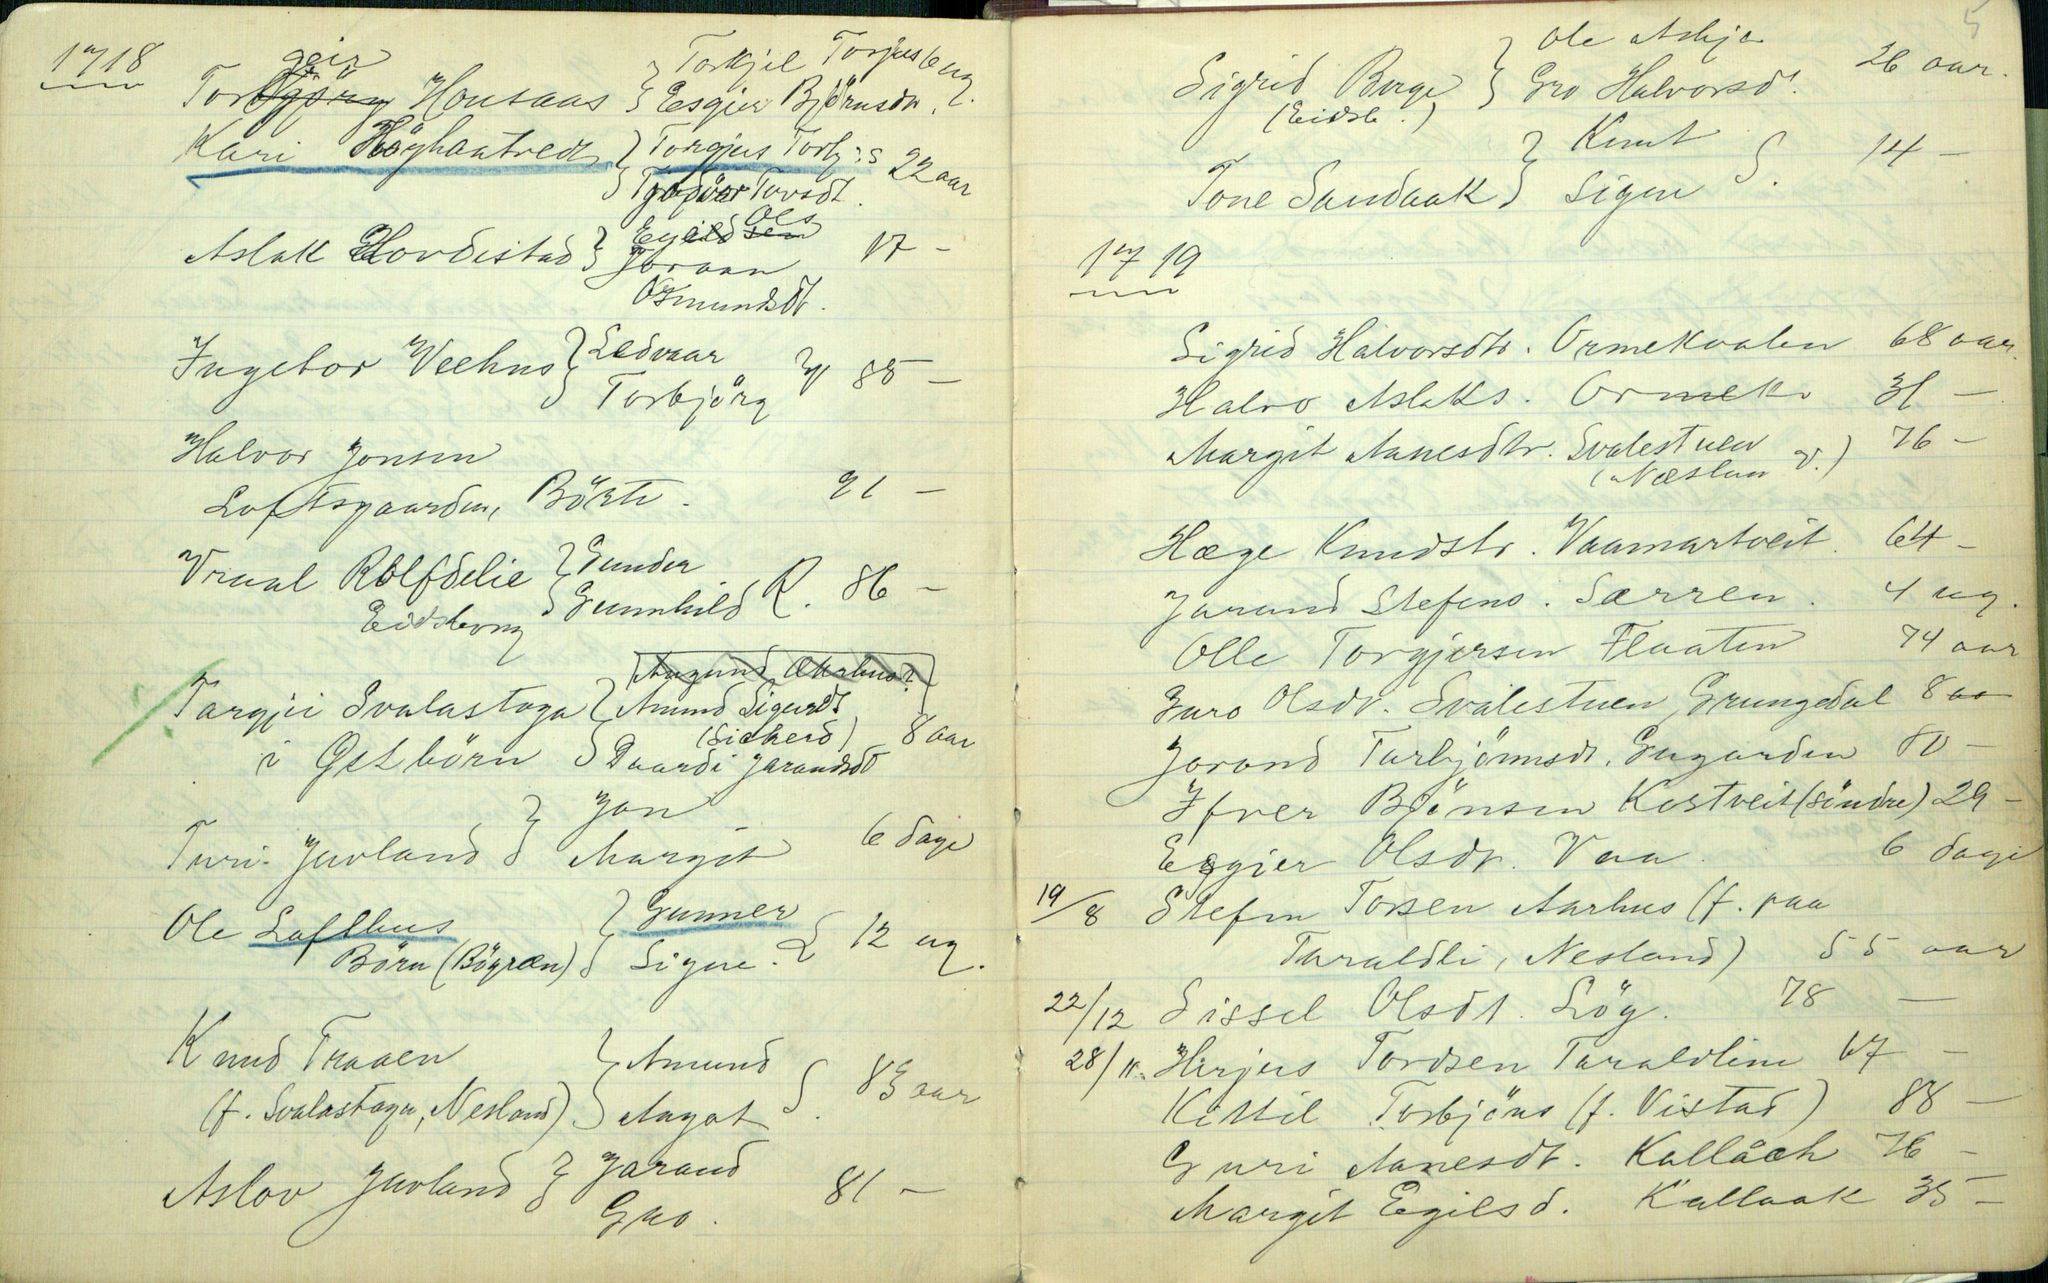 1718
geir
Torbjörg Housaas } Torkjel Torjus 6 ug.
Esgier Björnsdr.
Kari Höghaatvedt } Torgjus Torbj:s 22 aar
Torsdt.
Aslak Hovdestad } Ols
Joraan 17 -
Osmundsdt.
Ingebor Veehus } Ledvaar
Torbjörg 85 -
Halvor Jonsen
Loftsgaarden, Börte. 91 -
Vraal Rolfdelie } Gunder
Eidsborg Gunnhild R. 86 -
Augund Aarhus?
Targjei Svalastoga } Amund Sigurdt
(Sicherd) 8 aar
i Ostbörn Daardi Jarandsdt
Turi Juvland } Jon
Margit 6 dage
Ole Lofthus } Gunner
Börn (Bögræn) Signe. L 12 ug.
Knud Traaen } Amund
(f. Svalastoga, Nesland) Aagot S. 83 aar
Aslov Juvland } Jarand
Gro. 81 -
5
Sigrid Berge } Ole Askje
(Eidsb.) Gro Halvorsdt. 26 aar.
Tone Sandaak } Knut
Signe S. 14 -
1719
Sigrid Halvorsdtr. Ormekvalen 68 aar.
Halvo Aslaks. Ormek. 31 -
Margit Aanesdtr. Svalestuen 76 -
(Næsland v.)
Hæge Knudstr. Vaamartveit. 64 -
Jarand Stefens. Særren. 4 ug.
Olle Torgjersen Flaaten 74 aar
Guro Olsdr. Svalestuen, Grungedal 8 aa
Jorond Tarbjörnsdt. Sugarden 80 -
Ifver Björnsen Kostveit (söndre) 29 -
Esgier Olsdr. Vaa. 6 dage
19/8 Stefen Torsen Aarhus (f. paa
Taraldli, Nesland) 55 aar
22/12 Sissel Olsdt. Lög. 78 -
28/11. Herjus Tordsen Taraldlien 67 -
Kittil Torbjöns (f. Vistad) 88 -
Guri Aanesdt. Kallåeh 76 -
Margit Egilsd. Kallaak 35 -